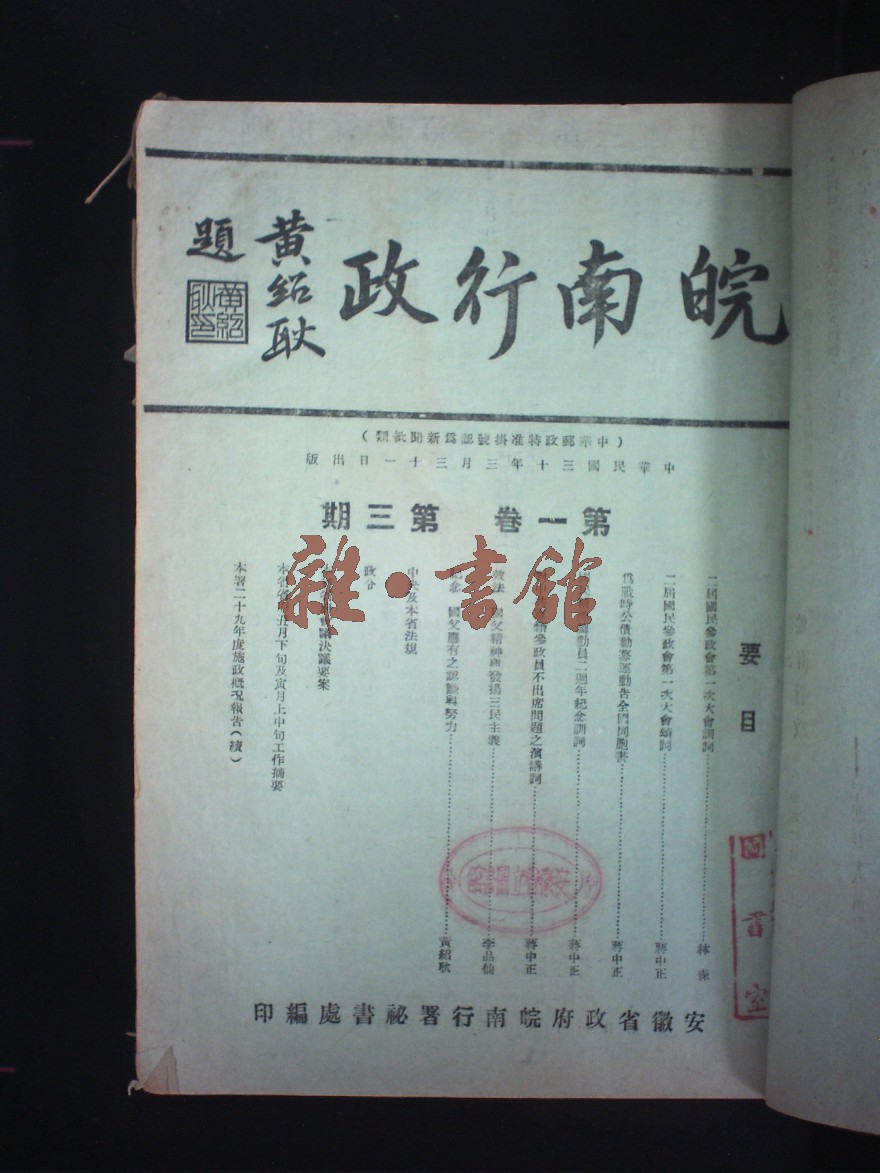 皖南行政
黄紹耿
題
黄紹耿印
（中華郵政特准掛號認爲新聞紙類）
中華民國三十年三月三十一日出版
第一卷 第三期
要目
二屆國民參政會第一次大會訓詞……林森
二屆國民參政會第一次大會頌詞……蔣中正
爲戰時公債勸募運動告全國同胞書……蔣中正
動員二週年紀念訓詞……蔣中正
參政員不出席問題之演講詞……蔣中正
效法 國父精神與發揚三民主義……李品仙
紀念 國父應有之認識與努力……黃紹耿
中央及本省法規
政令
決議要案
月下旬及寅月上中旬工作摘要
本署二十九年度施政概況報告（續）
安徽省政府皖南行署祕書處編印
圖書室
安徽省立圖書館
雜·書館